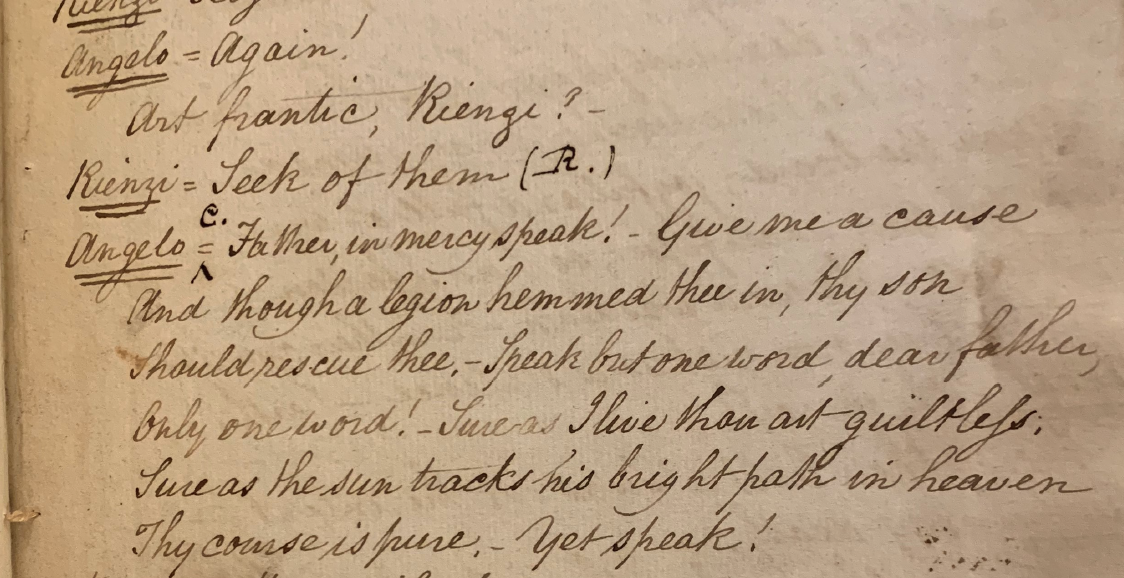 Rienzi
Angelo = Again!
Art frantic, Rienzi? -
Rienzi = Seek of them (R.)
C.
Angelo = Father, in mercy speak! - Give me a cause
And though a legion hemmed thee in, thy son
Should rescue thee. - Speak but one word, dear father,
Only one word! - Sure as I live thou art guiltless;
Sure as the sun tracks his bright path in heaven
Thy course is pure. - Yet speak!